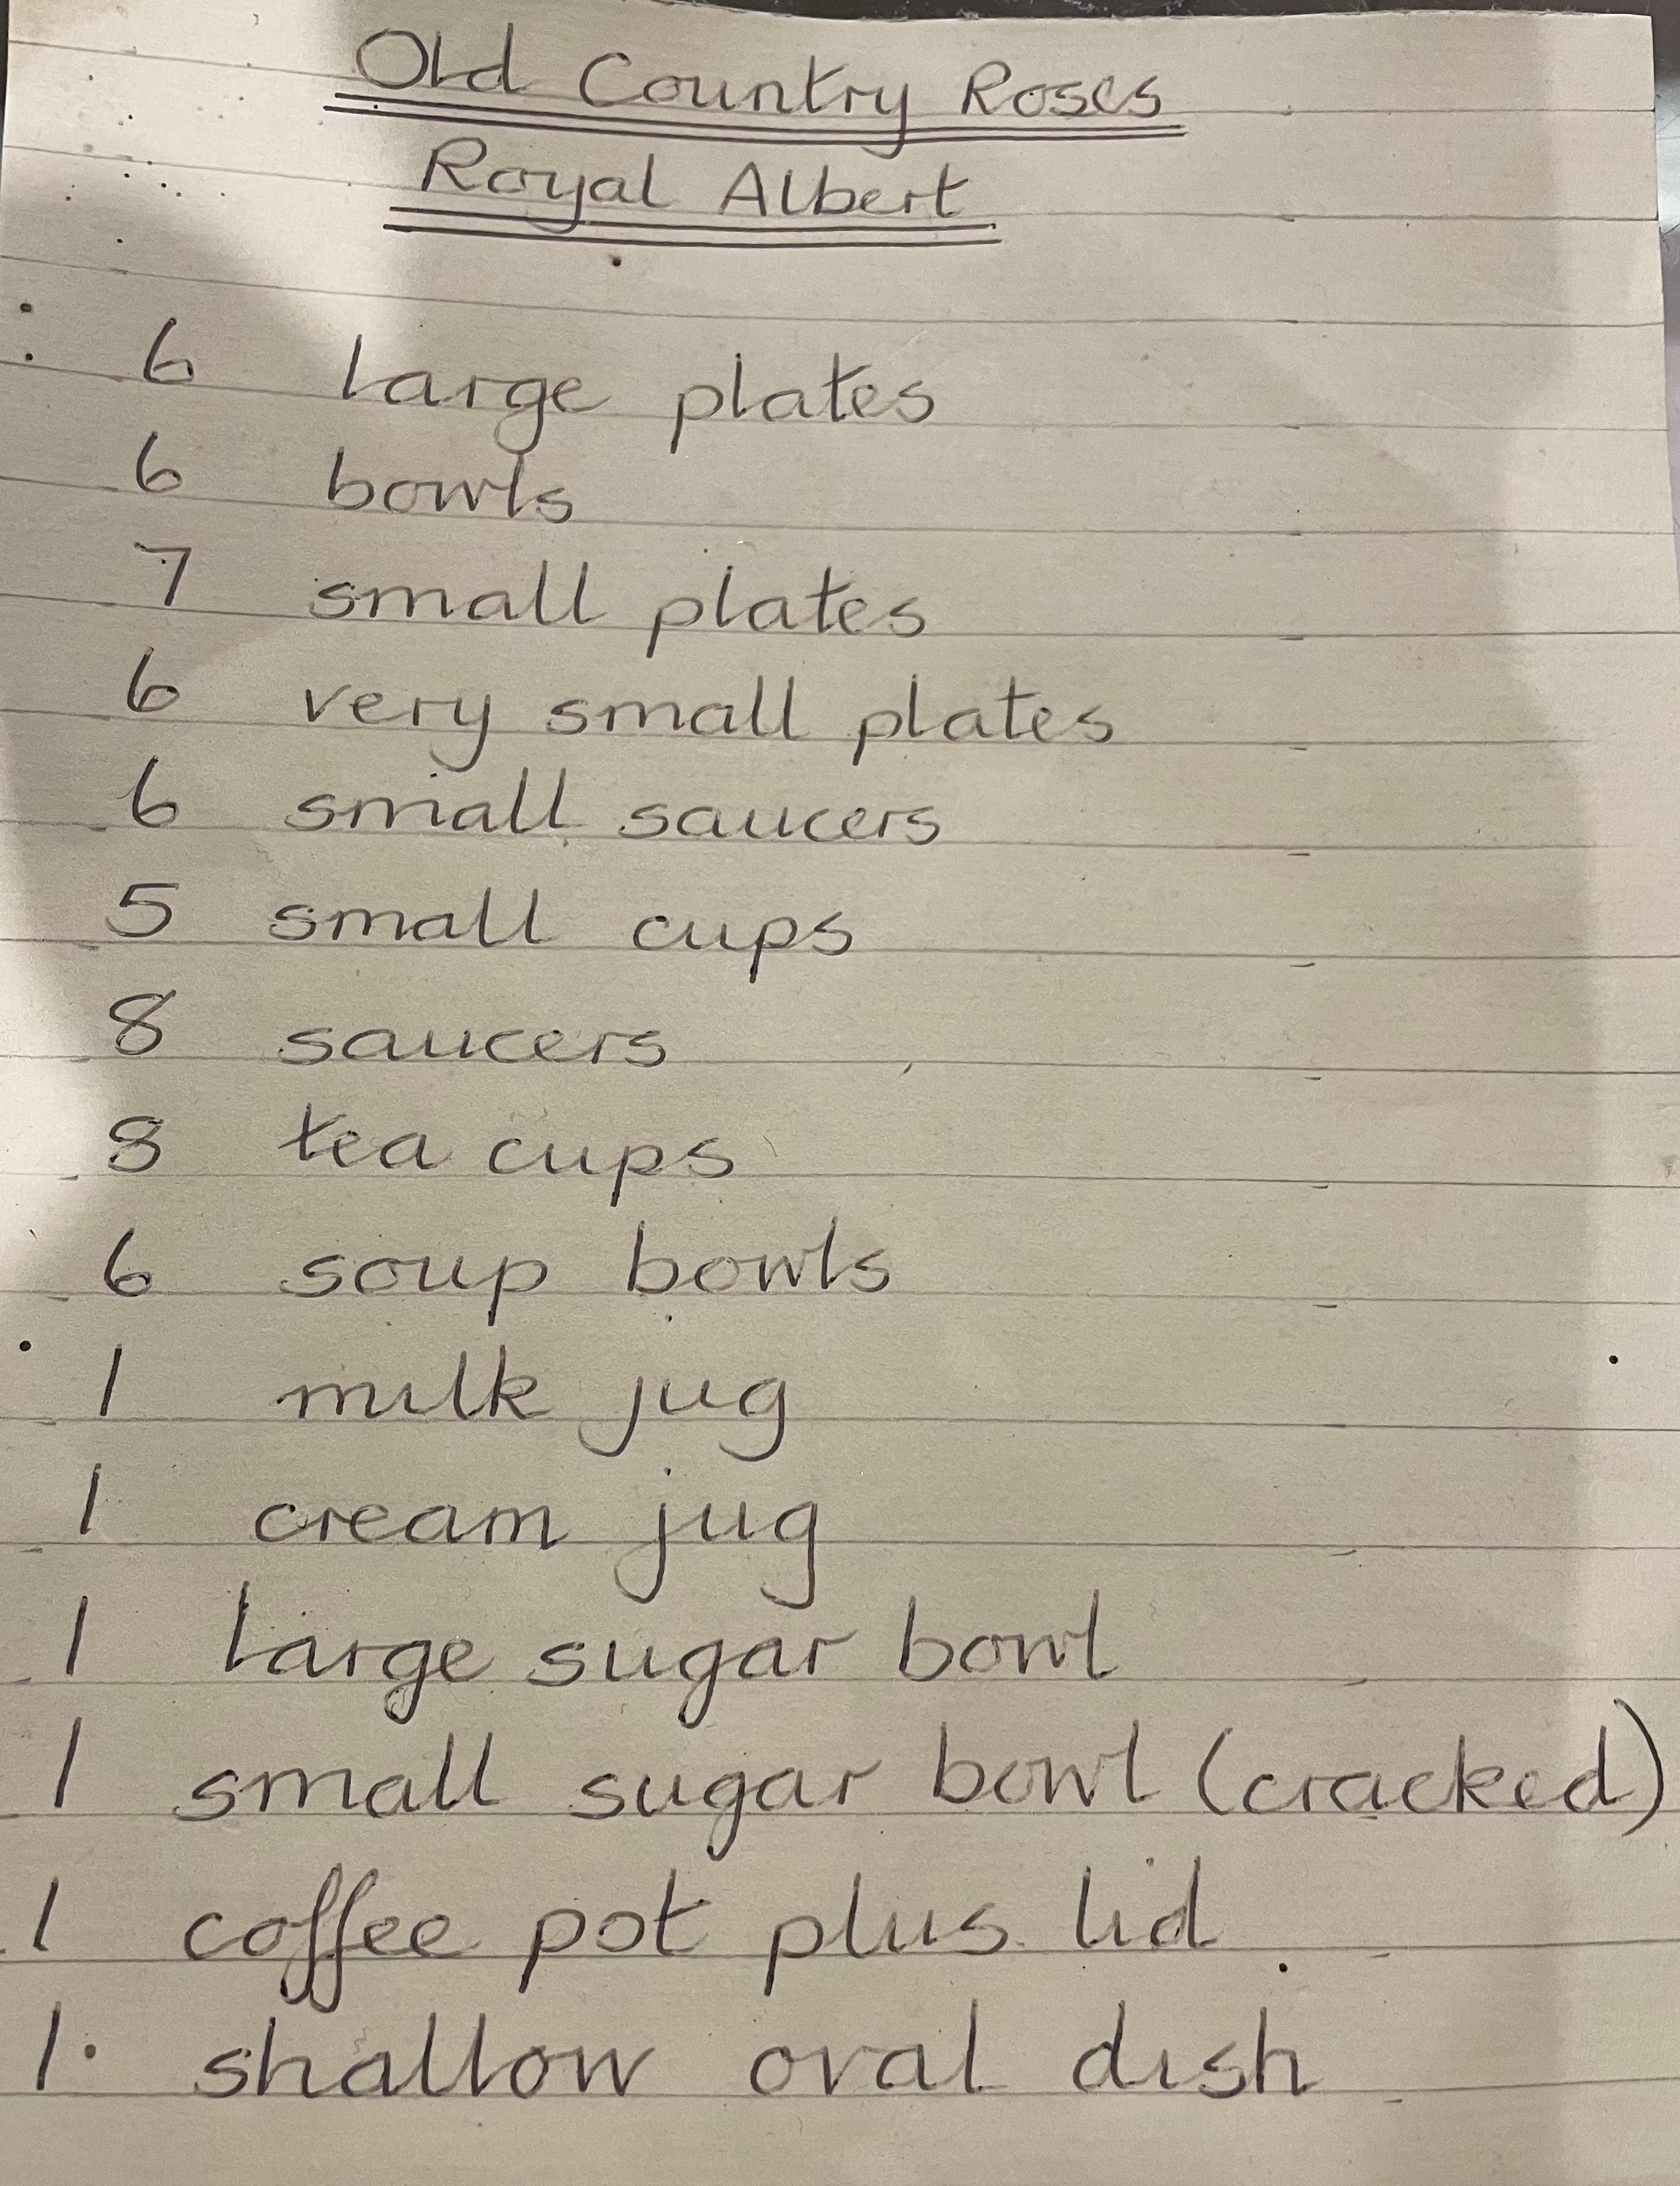 Old Country Roses
Royal Albert
6 large plates
6 bowls
7 small plates
6 very small plates
6 small saucers
5 small cups
8 saucers
8 tea cups
6 soup bowls
1 milk jug
1 cream jug
1 large sugar bowl
1 small sugar bowl (cracked)
1 coffee pot plus lid
1 shallow oval dish